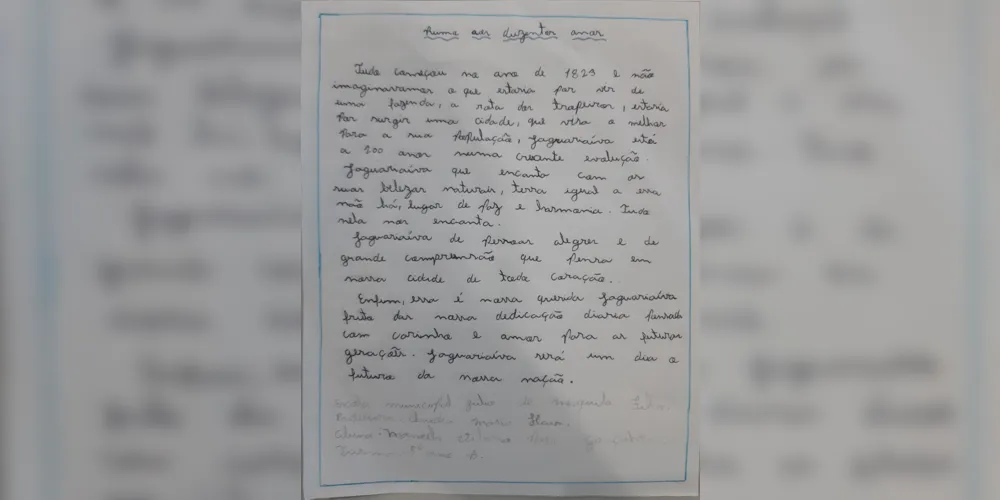 Rumo aos duzentos anos
Tudo começou no ano de 1823 e não
imaginavamos o que estaria por vir de
uma fazenda, a rota dos tropeiros, estaria
por surgir uma cidade, que vira a melhor
para a sua população, Jaguariaíva está
a 200 anos numa crescente evolução.
Jaguariaíva que encanta com as
suas belezas naturais, terra igual a essa
não há, lugar de paz e harmonia. Tudo
nela nos encanta.
Jaguariaíva de pessoas alegres e de
grande compreensão que pensa em
nossa cidade de todo coração.
Enfim, essa é nossa querida Jaguariaíva
fruto das nossa dedicação diaria pensada
com carinho e amor para as futuras
gerações. Jaguariaíva será um dia o
futuro da nossa nação.
municipal de Mesquita Filho
Professora Maria
Aluno
Turma